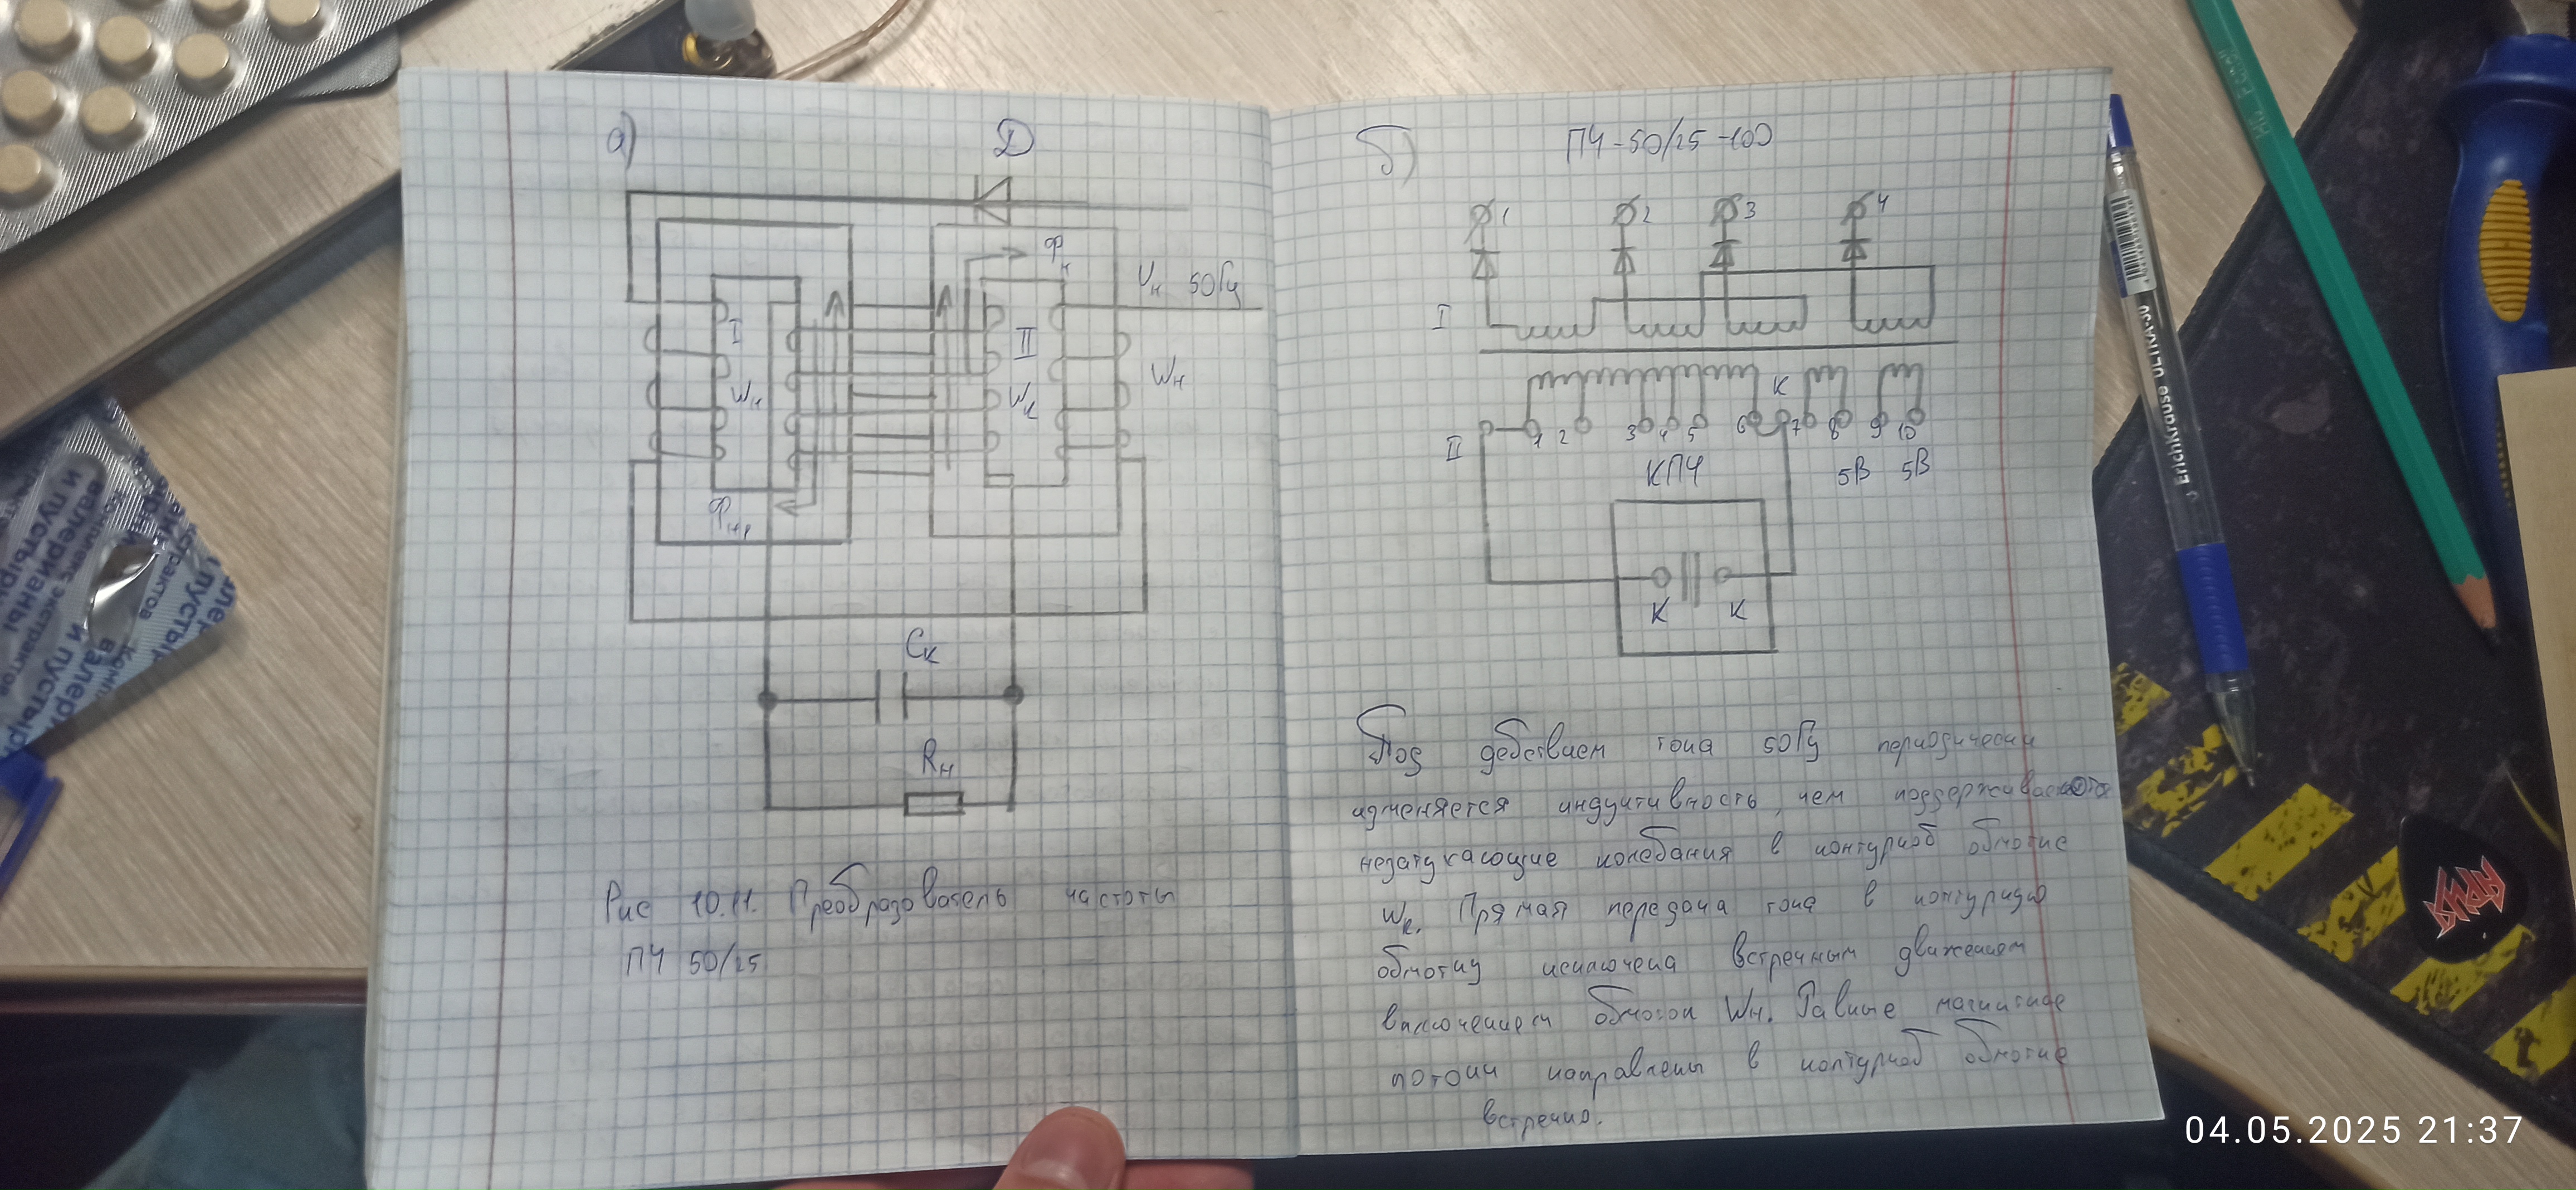 а)
Д
Фн
Uн 50Гц
I
II
Wн
Wк
Wн
Фнр
Cк
Rн
Рис 10.11. Преобразователь частоты
ПЧ 50/25
б)
ПЧ-50/25-100
1 2 3 4
I
К
1 2 3 4 5 6 7 8 9 10
II
КПЧ
5В 5В
К К
Под действием тока 50Гц периодически
изменяется индуктивность, чем поддерживаются
незатухающие колебания в контурной обмотке
Wк. Прямая передача тока в контурную
обмотку исключена встречным движением
включением обмоток Wн. Равные магнитные
потоки направлены в контурной обмотке
встречно.
Erichkrause ULTRA-30
КИПА
04.05.2025 21:37